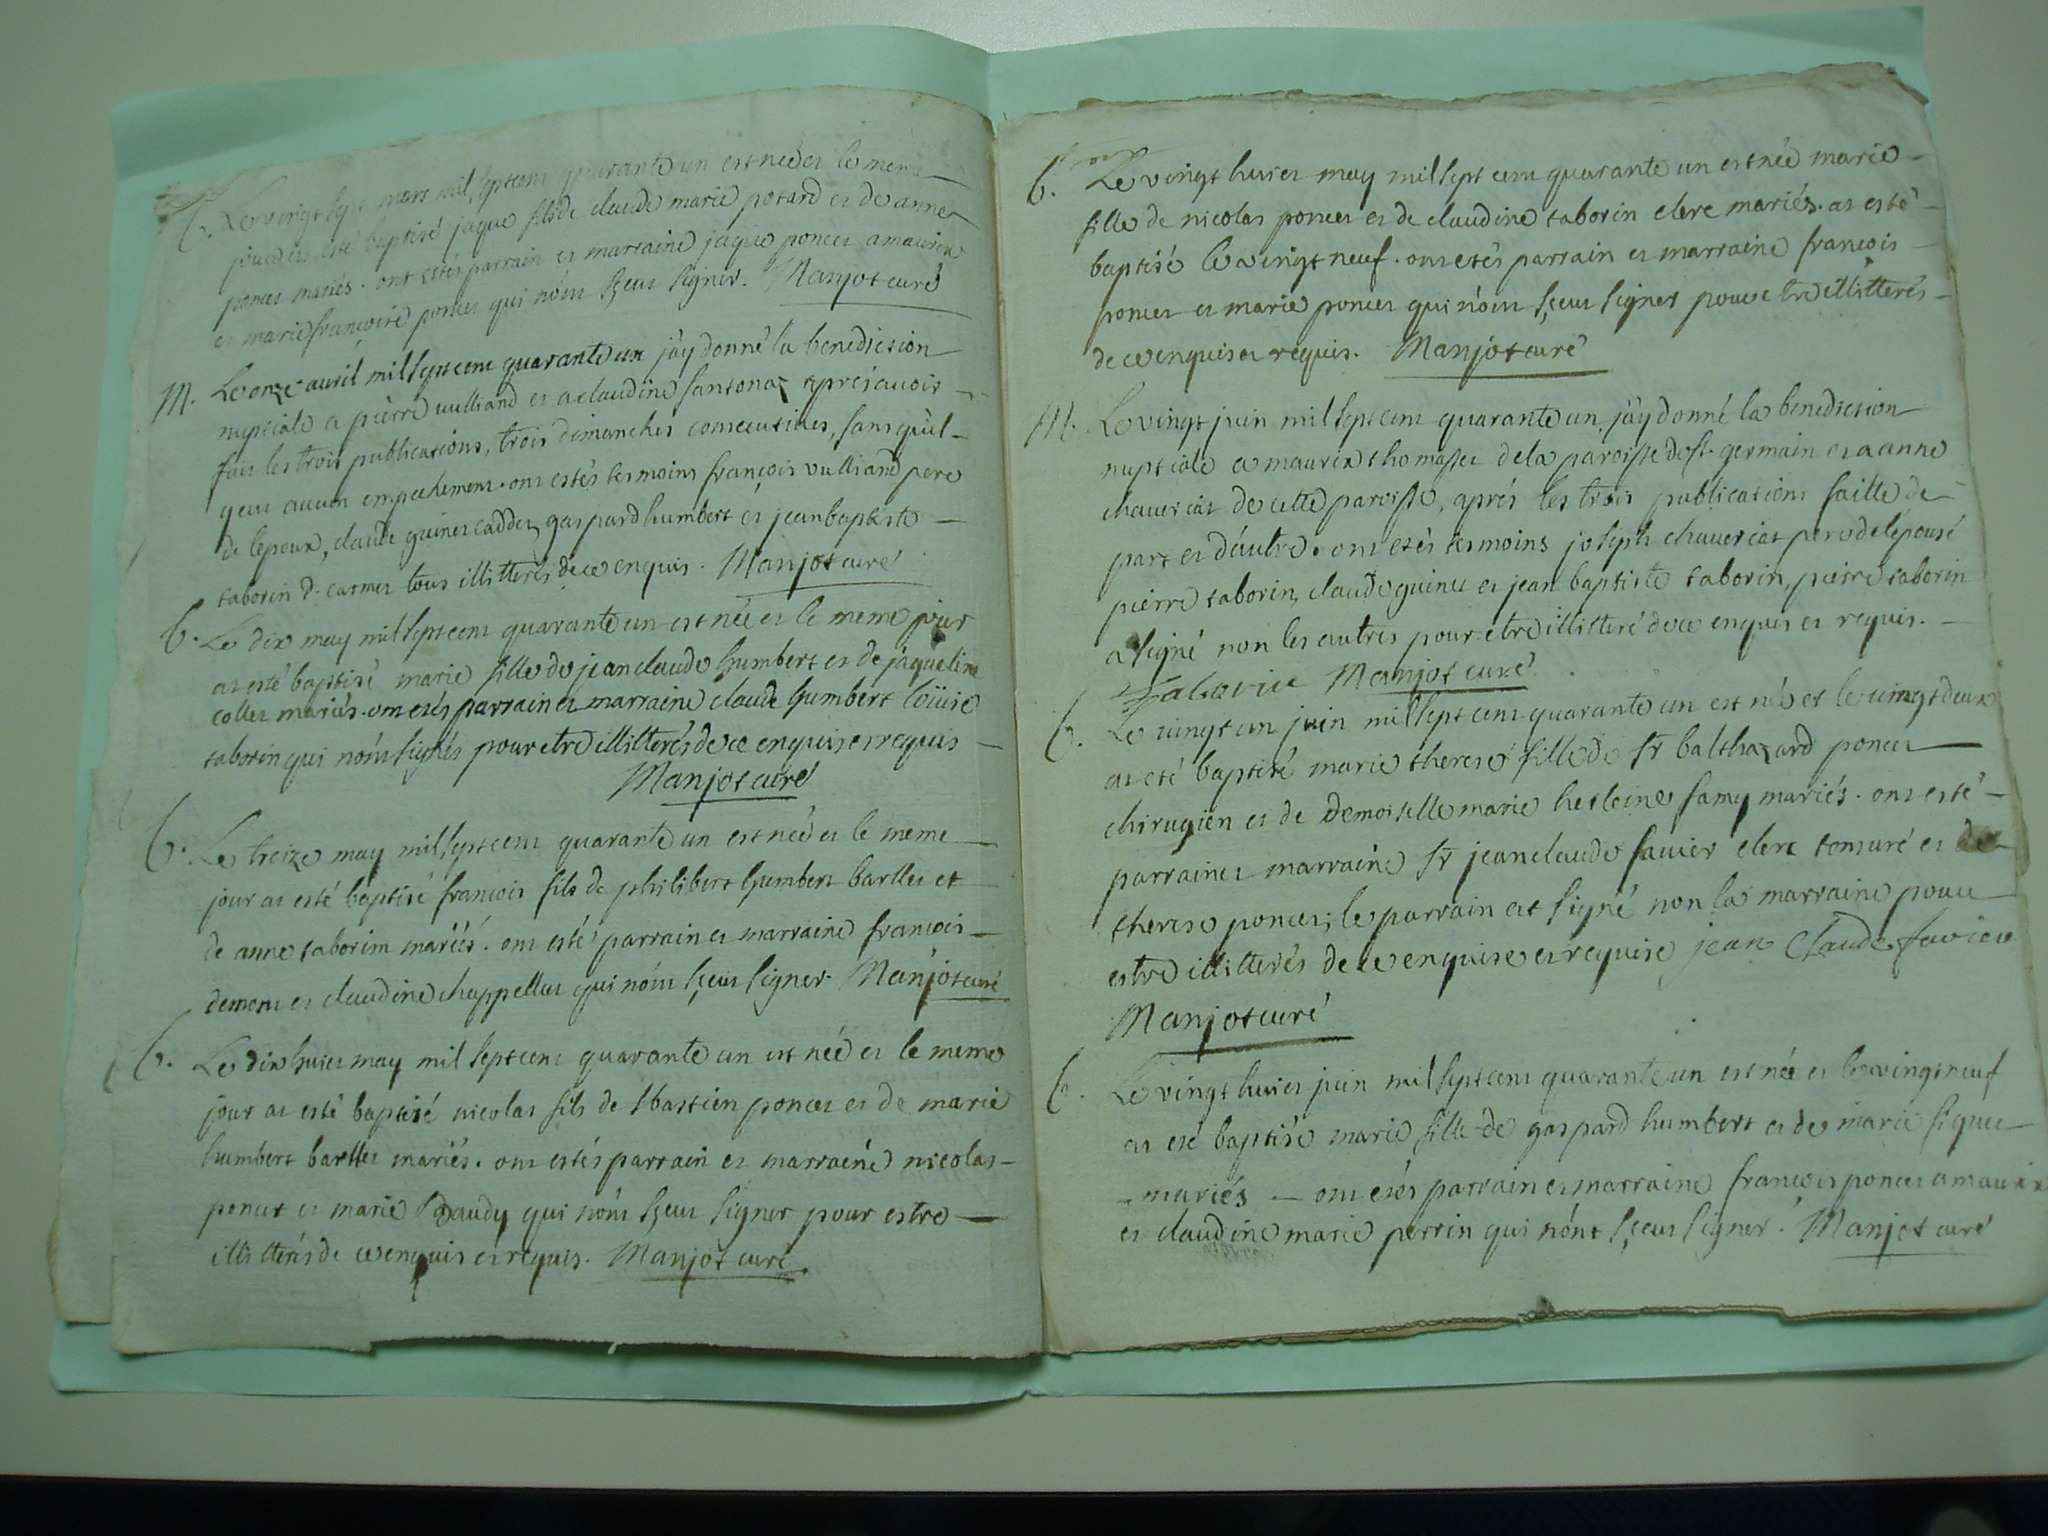 b. Le vingt sept mars mil sept cent quarante un est né et le meme
jour at esté baptisé jaque fils de claude marie potard et de anne
poncet mariés. ont estés parrain et marraine jaque poncet amaurix
et marie francoise poncet qui nónt sçeut signer. Manjot curé
M. Le onze avril mil sept cent quarante un j'ay donné la benediction
nuptiale a pierre vulliand et a claudine santonaz aprés avoir
fait les trois publications, trois dimanches consecutives, sans qu'il
y eut aucun empechement. ont estés tesmoins françois vulliand pere
de lepoux, claude guinet caddet, gaspard humbert et jean baptiste
taborin d. carmet tous illitterés de ce enquis. Manjot curé
b. Le dix may mil sept cent quarante un est née et le meme jour
at esté baptisé marie fille de jean claude humbert et de jaqueline
collet mariés. ont etés parrain et marraine claude humbert loüise
taborin qui nónt signés pour etre illitterés de ce enquis et requis
Manjot curé
b. Le treize may mil sept cent quarante un est né et le meme
jour at esté baptisé francois fils de philibert humbert barllet et
de anne taborin mariés. ont esté parrain et marraine francois
dement et claudine chappellut qui nónt sçeut signer. Manjot curé
b. Le dix huict may mil sept cent quarante un est né et le meme
jour at esté baptisé nicolas fils de sbastien poncet et de marie
humbert barllet mariés. ont estés parrain et marraine nicolas
poncet et marie daudy qui nónt sçeut signer pour estre
illitterés de ce enquis et requis. Manjot curé
b. Le vingt huict may mil sept cent quarante un est née marie
fille de nicolas poncet et de claudine taborin clerc mariés. at esté
baptisé le vingt neuf. ont etés parrain et marraine francois
poncet et marie poncet qui nónt sçeut signer pour etre illitterés
de ce enquis et requis. Manjot curé
M. Le vingt juin mil sept cent quarante un j'ay donné la benediction
nuptiale a maurix thomasset de la paroisse de st. germain et a anne
chavericat de cette paroisse, aprés les trois publications faitte de
part et dáutre. ont etés tesmoins joseph chavericat pere de lépouse
pierre taborin, claude guinet et jean baptiste taborin, pierre taborin
a signé non les autres pour etre illitteré de ce enquis et requis.
Taborin Manjot curé
b. Le vingt un juin mil sept cent quarante un est née et le vingt deux
at eté baptisé marie therese fille de sr balthazard poncet
chirugiën et de Demoiselle marie heleine samy mariés. ont esté
parrain et marraine sr jean claude favier clerc tonsuré et de
therese poncet; le parrain at signé non la marraine pour
estre illitterés de ce enquise et requise jean Claude favier
Manjot curé
b. Le vingt huict juin mil sept cent quarante un est née et le vingt neuf
at eté baptisé marie fille de gaspard humbert et de marie siquet
mariés ont etés parrain et marraine francois poncet amaurix
et claudine marie perrin qui nónt sçeut signer. Manjot curé